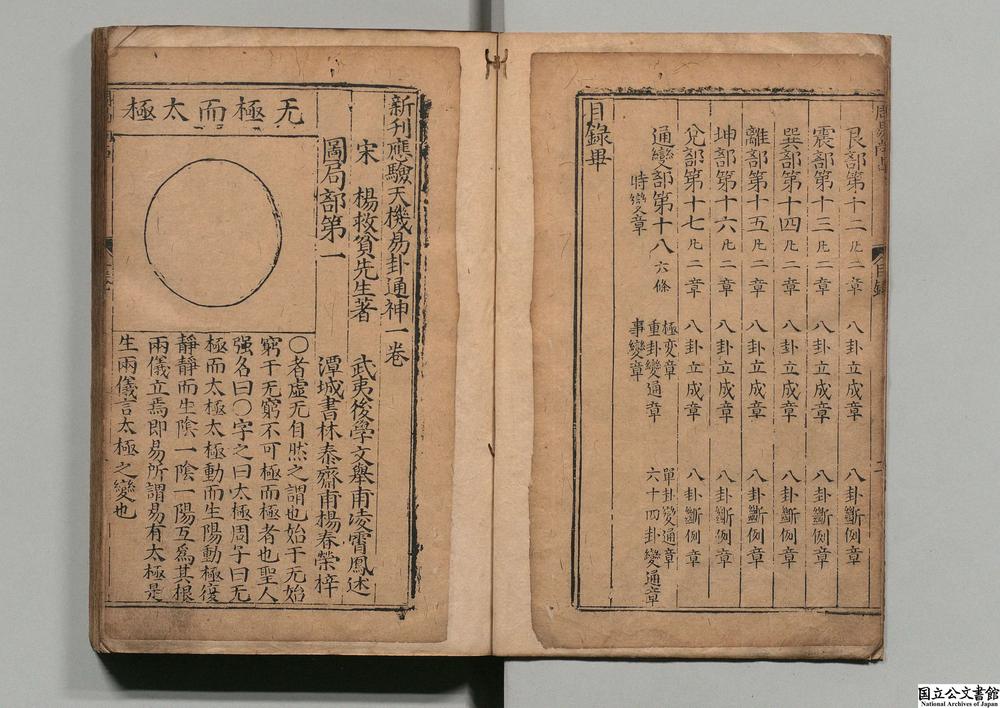 艮部第十二 凡二章 八卦立成章 八卦斷例章
震部第十三 凡二章 八卦立成章 八卦斷例章
巽部第十四 凡二章 八卦立成章 八卦斷例章
離部第十五 凡二章 八卦立成章 八卦斷例章
坤部第十六 凡二章 八卦立成章 八卦斷例章
兌部第十七 凡二章 八卦立成章 八卦斷例章
通變部第十八 六條 極变章 單卦變通章
重卦變通章 六十四卦變通章
時變章 事變章
目錄畢
目錄
新刊應驗天機易卦通神一卷
宋 楊救貧先生著 武夷後學文舉甫凌霄鳳述
圖局部第一 潭城書林泰齋甫楊春榮梓
无極而太極
〇者虛无自然之謂也始于无始
窮于无窮不可極而極者也聖人
强名曰〇字之曰太極周子曰无
極而太極太極動而生陽動極復
靜靜而生陰一陰一陽互爲其根
兩儀立焉即易所謂易有太極是
生兩儀言太極之變也
国立公文書館
National Archives of Japan